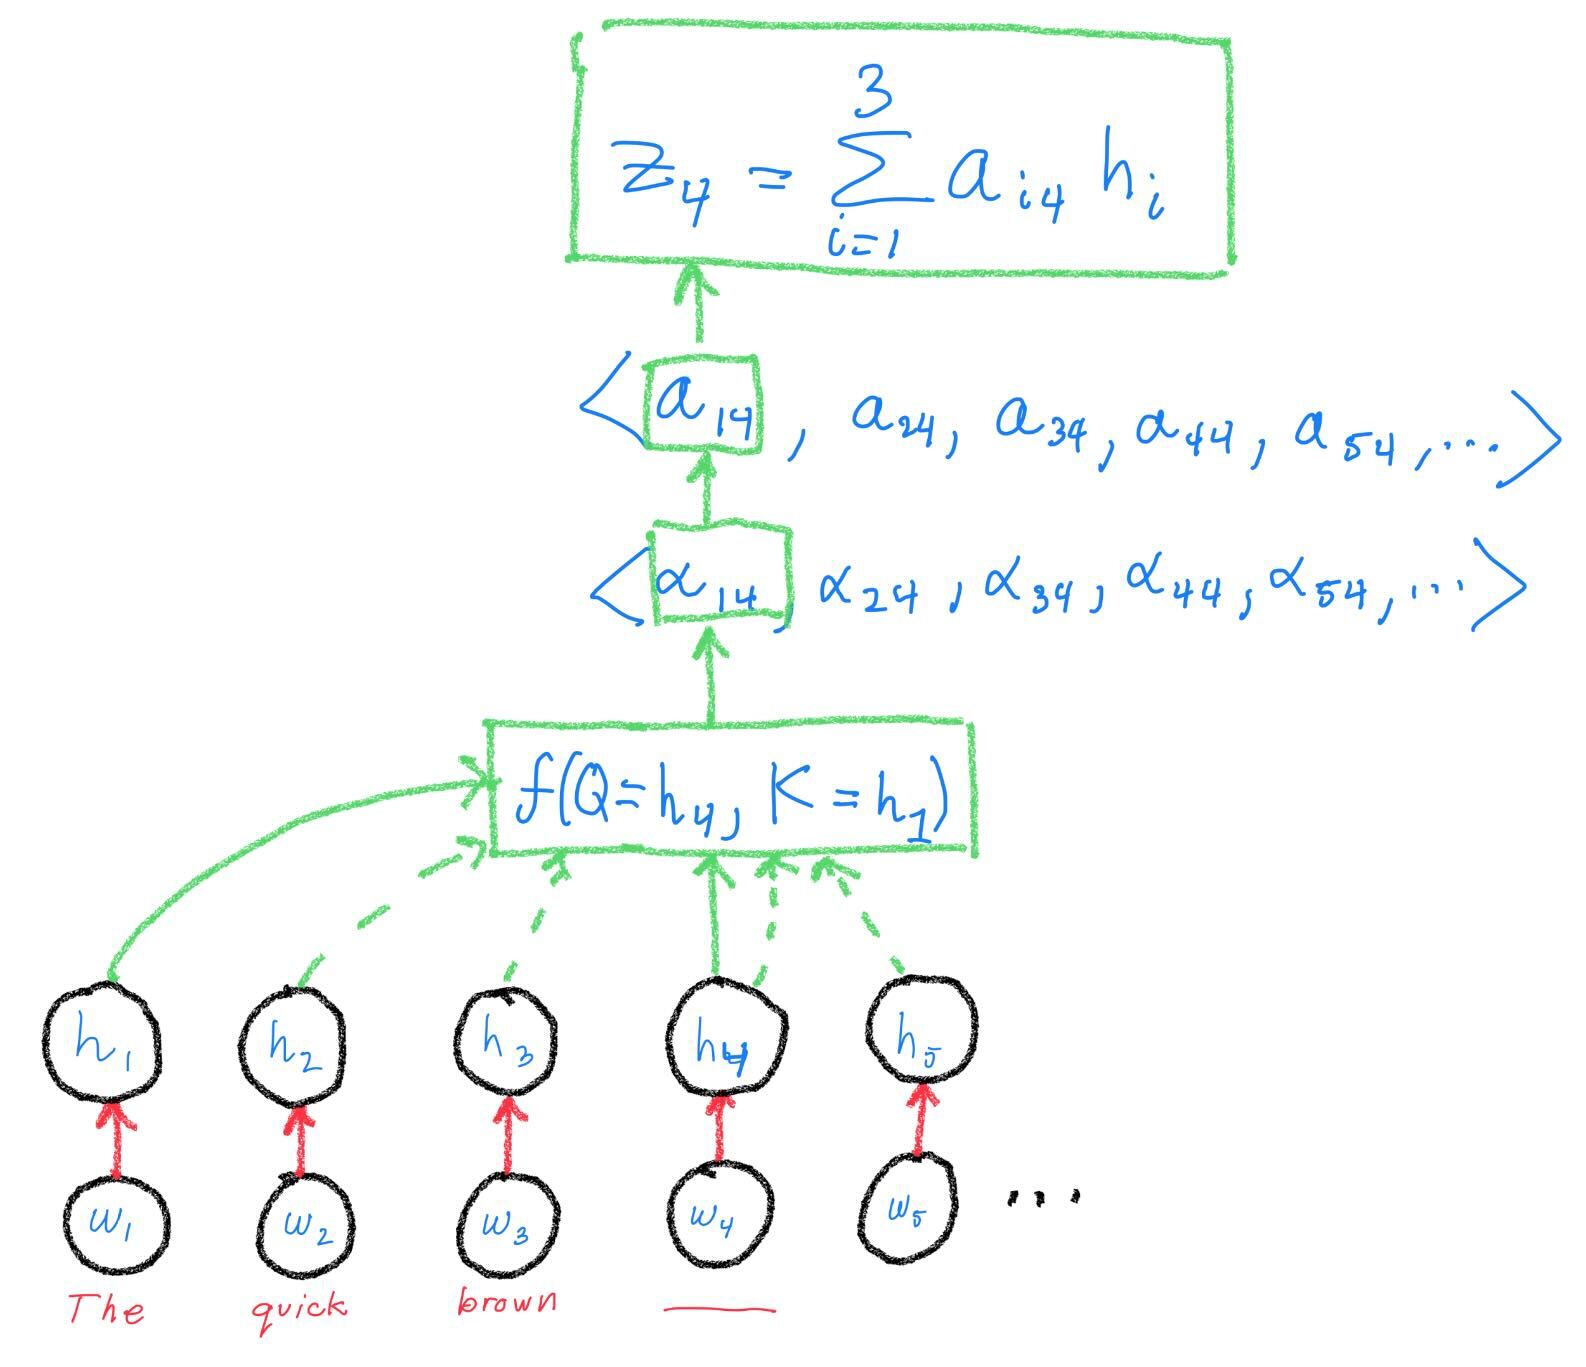 3
z₄ = ∑ aᵢ₄ hᵢ
i=1
< a₁₄ , a₂₄, a₃₄, a₄₄, a₅₄, ... >
< α₁₄, α₂₄, α₃₄, α₄₄, α₅₄, ... >
f(Q=h₄, K=h₁)
h₁ h₂ h₃ h₄ h₅
w₁ w₂ w₃ w₄ w₅ ...
The quick brown ___